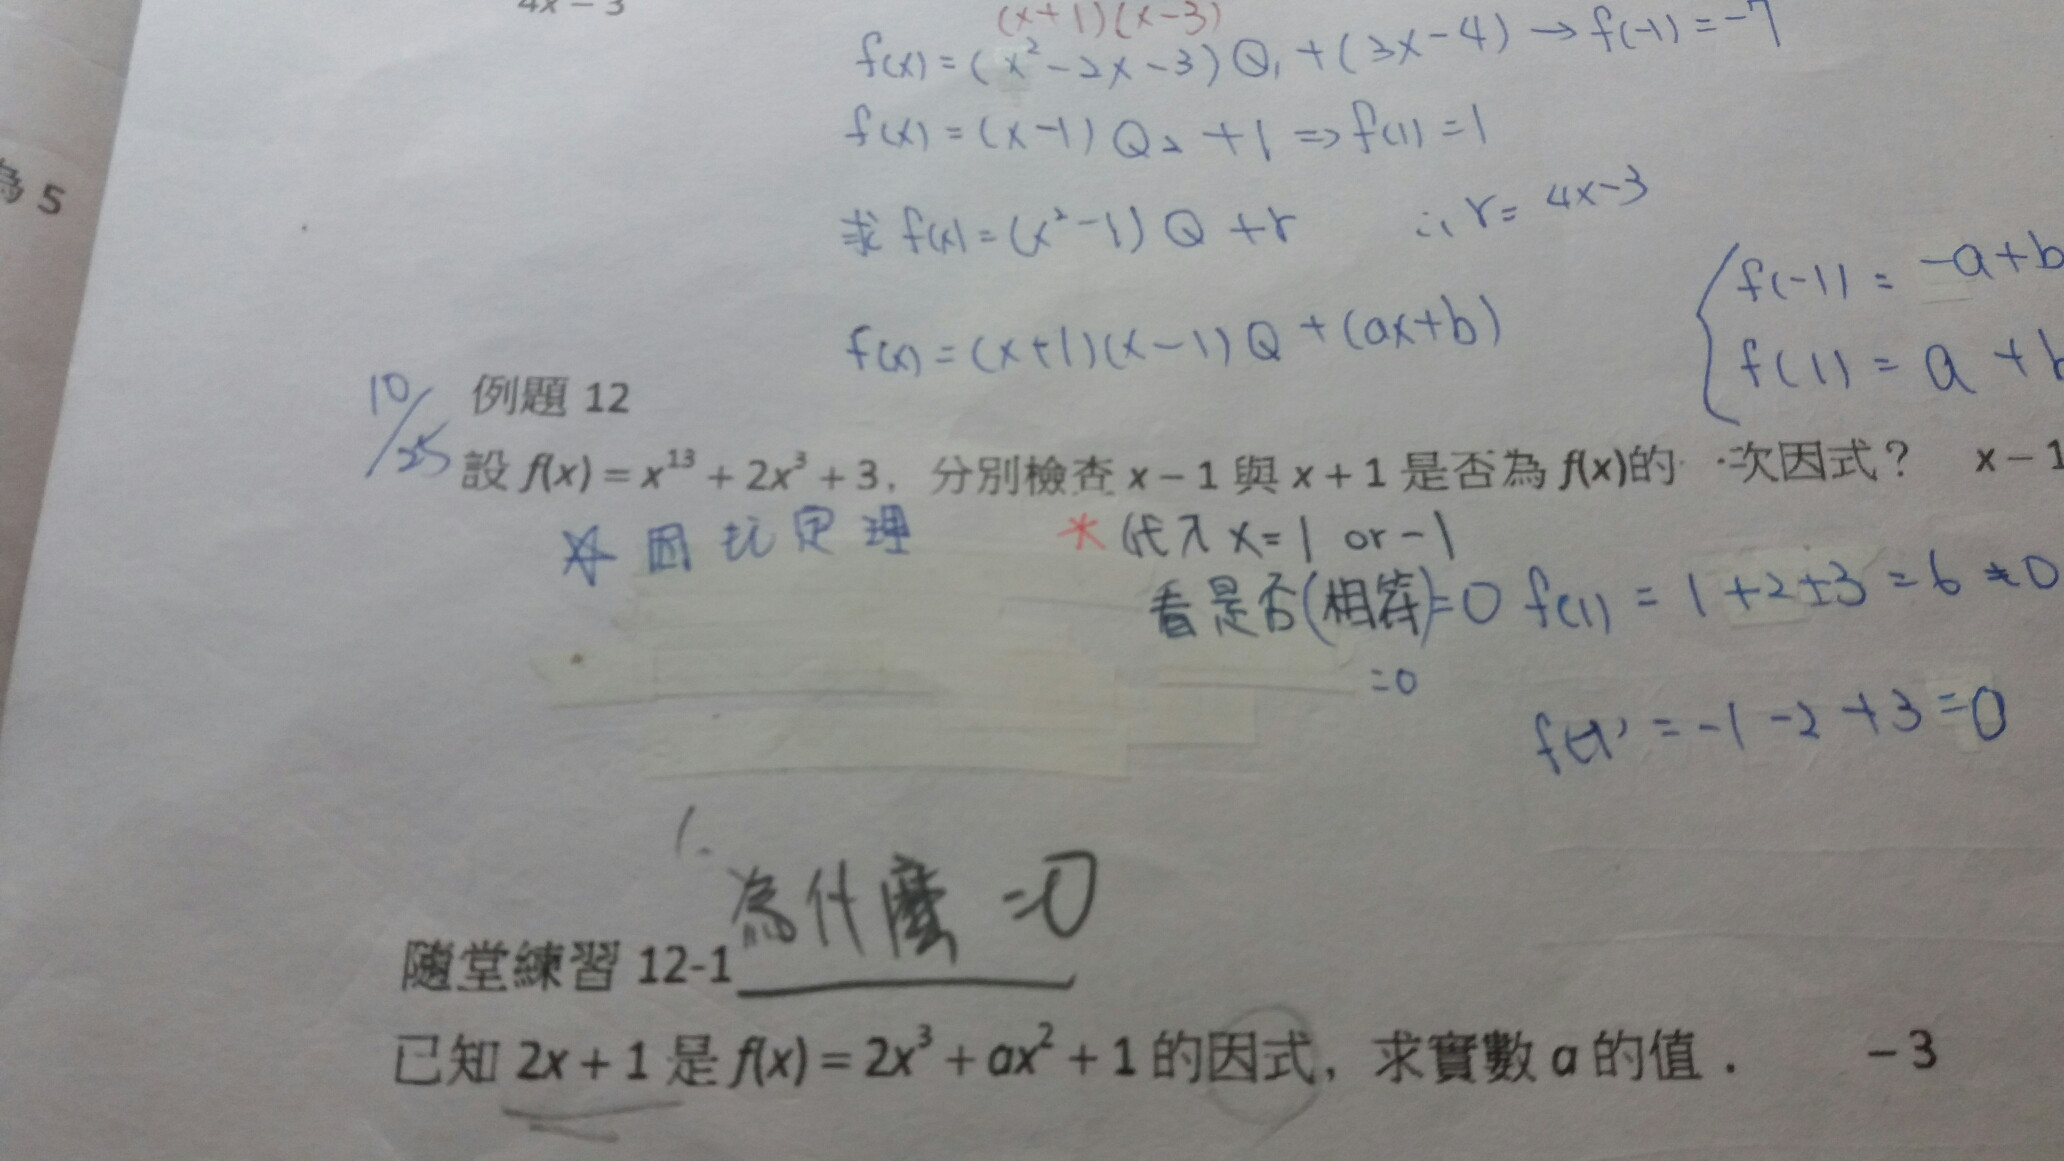 4x − 3
(x+1)(x-3)
f(x) = (x²-2x-3) Q₁ + (3x-4) → f(-1) = -7
f(x) = (x-1) Q₂ + 1 => f(1) = 1
為 5
求 f(x) = (x²-1) Q + r ∴ r = 4x-3
f(-1) = -a+b
f(x) = (x+1)(x-1) Q + (ax+b)
f(1) = a + b
10/25
例題 12
設 f(x) = x¹³ + 2x³ + 3，分別檢查 x − 1 與 x + 1 是否為 f(x)的 一次因式？ x − 1
☆ 因式定理
* 代入 x=1 or -1
看是否(相等)=0 f(1) = 1+2+3 = 6 ≠0
=0
f(-1) = -1 -2 +3 =0
1.
為什麼 =0
隨堂練習 12-1
已知 2x + 1 是 f(x) = 2x³ + ax² + 1 的因式，求實數 a 的值． − 3